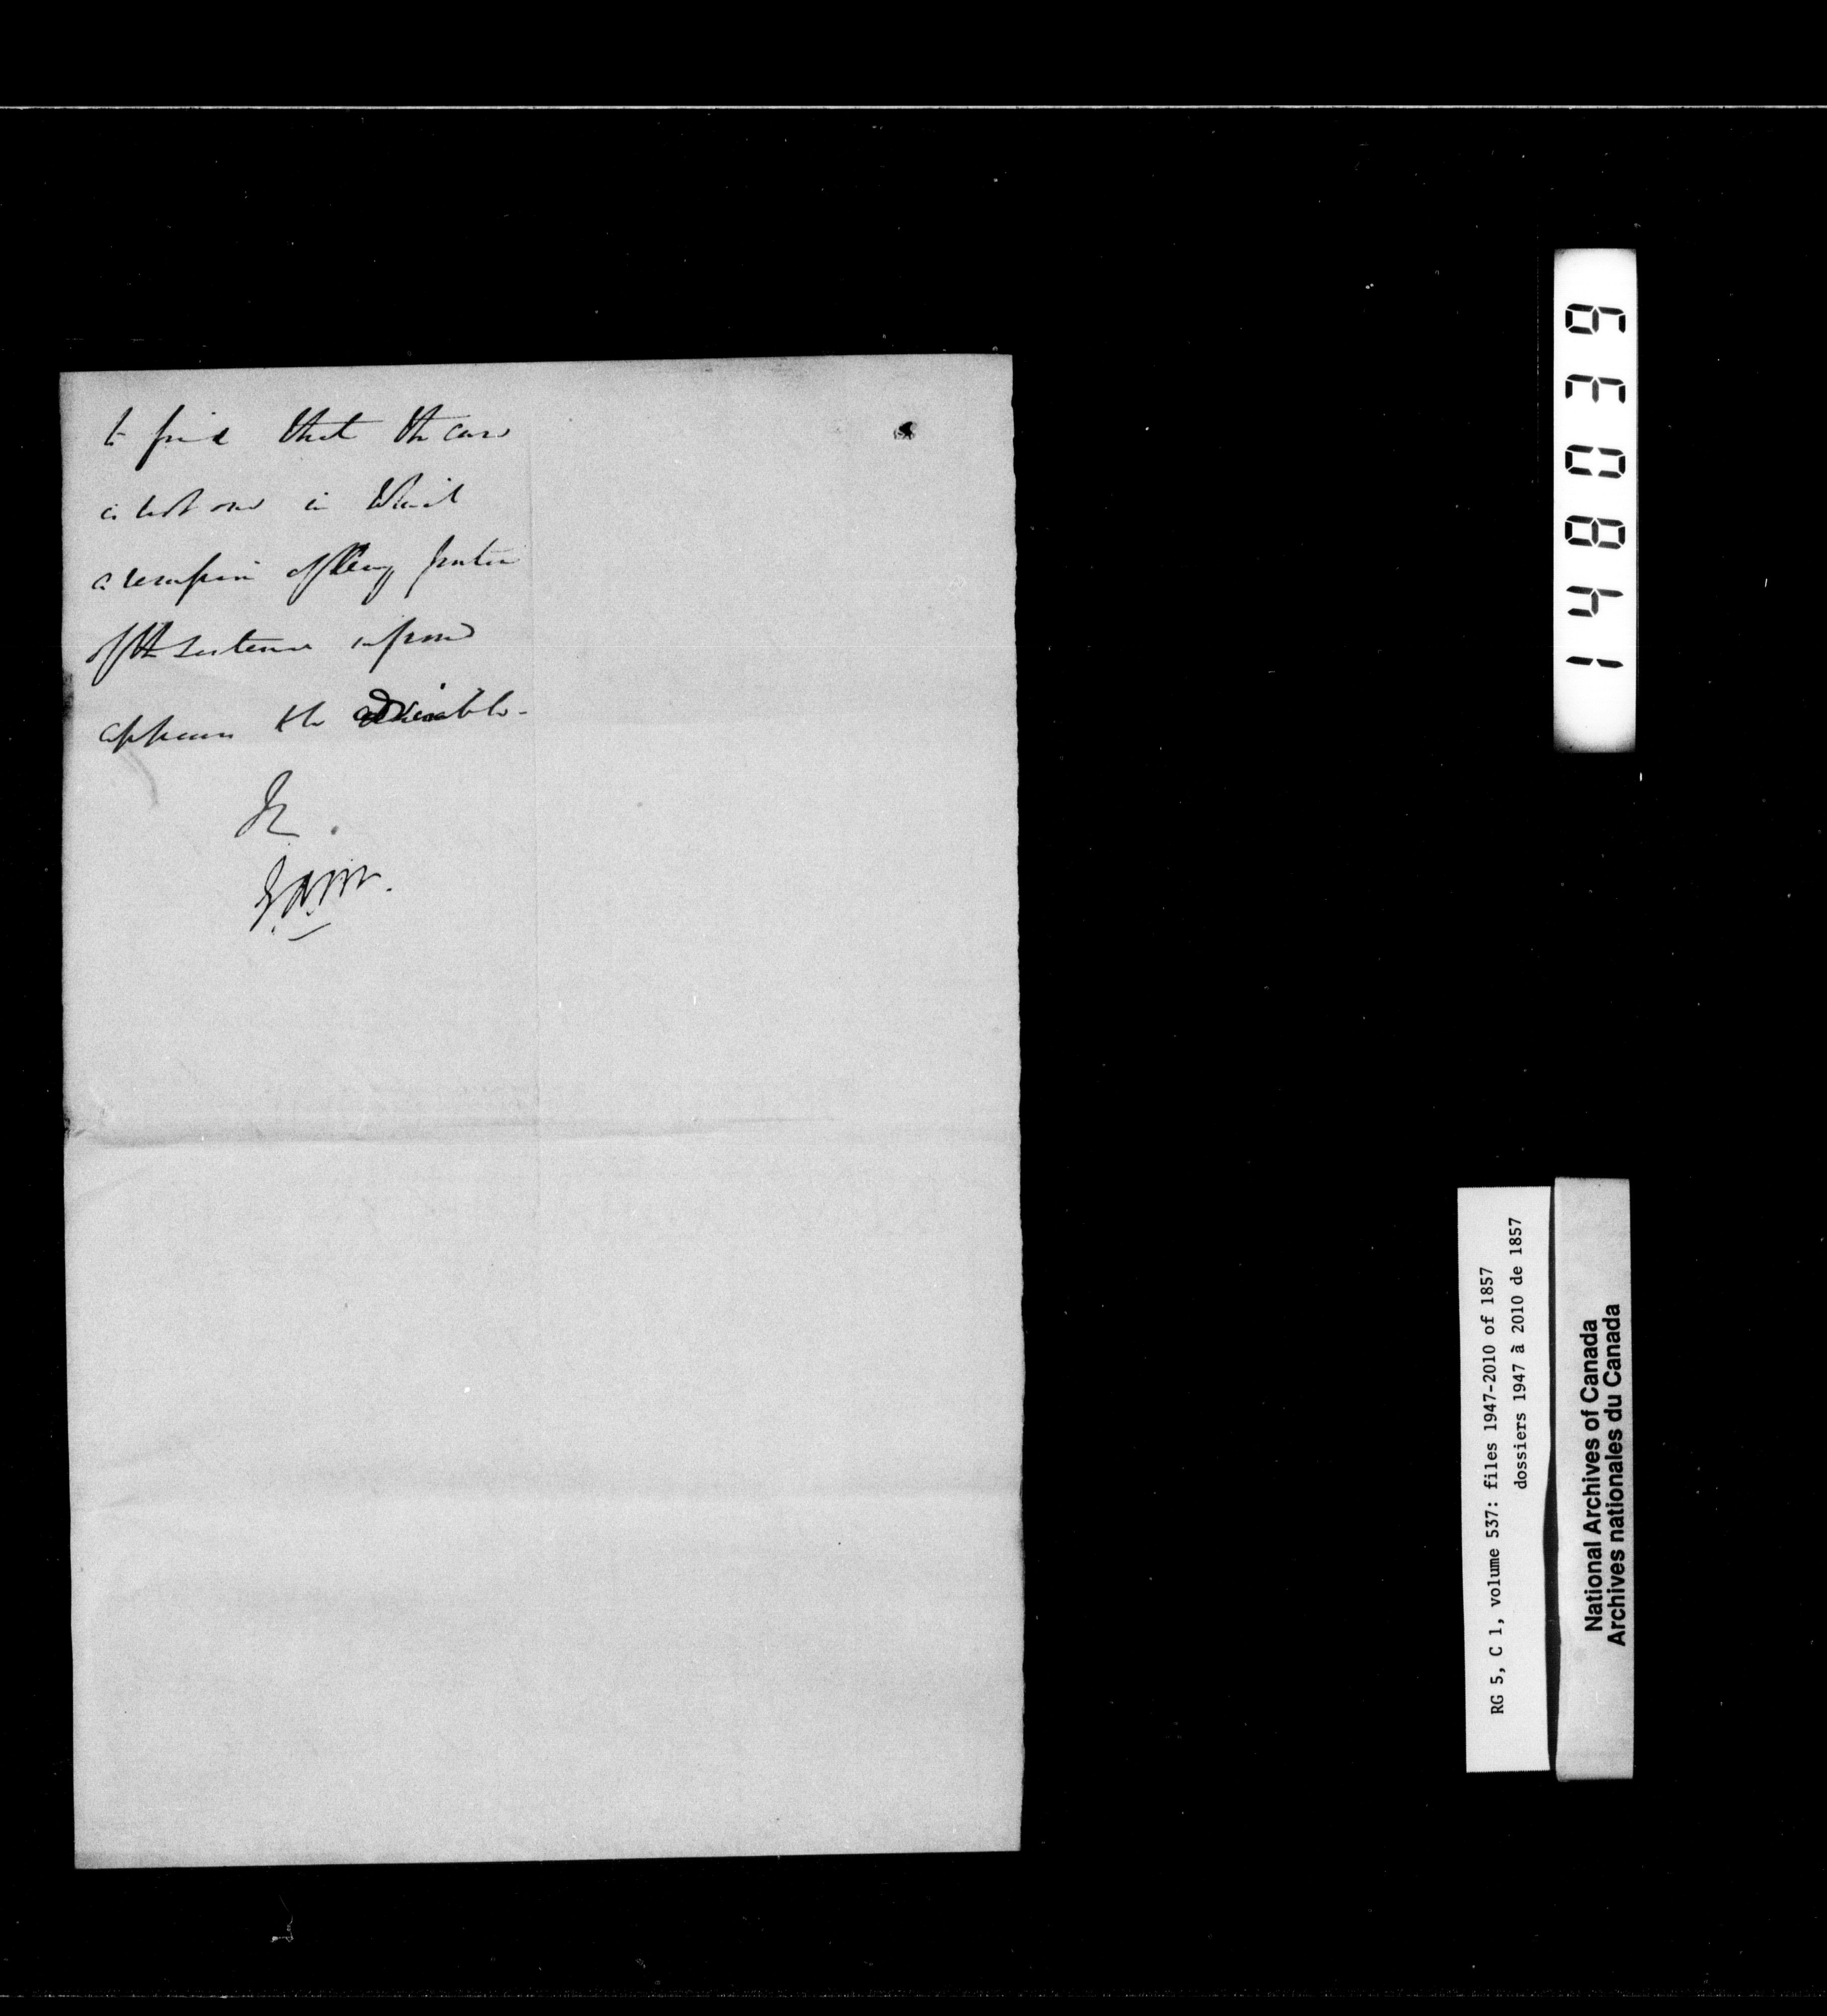 to find that the case
is not one in which
a remission of any portion
of the sentence imposed
appears to be advisable-
RG 5, C 1, volume 537: files 1947-2010 of 1857
dossiers 1947 à 2010 de 1857
National Archives of Canada
Archives nationales du Canada
148039